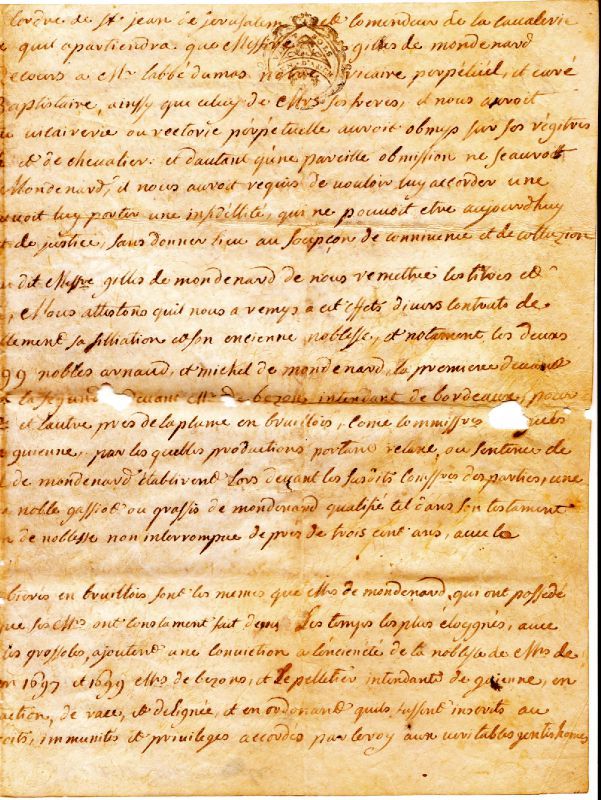 lordre de st jean de jerusalem et comendeur de la cavalerie
quil apartiendra que Messire gilles de mondenard
recours a Mr labbé dumas vicaire perpétuel, et curé
Baptistaire, ainssy que celuy de Mrs ses freres, et nous auroit
vicairerie ou rectorie perpétuelle auroit obmys sur ses régitres
et de chevalier: et dautant qune pareille obmission ne sauroit
Mondenard, il nous auroit requis de vouloir luy accorder une
luy porter une infidéllité, qui ne pouvoit etre aujourdhuy
de justice, sans donner lieu au soupçon de connivence et de collusion
dit Messre gilles de mondenard de nous remettre les titres et
Nous attestons quil nous a remys a cet effet divers contrats de
sa filliation et son encienne noblesse, et notament les deux
99 nobles arnaud, et michel de mondenard, la premiere devant
la segunde devant Mr de bezons intendant de bordeaux, pour
et lautre pres de la plume en bruillois, come commissres
guienne, par les quelles productions portant relaxe, ou sentence de
de mondenard établirent lors devant les susdits comissres des parties, une
noble gassiot ou grassis de mondenard qualifié tel dans son testament
de noblesse non interrompue de pres de trois cent ans, avec le
en bruillois sont les memes que Mrs de mondenard, qui ont possédé
que ses Mrs ont constament fait dans les temps les plus éloygnés, avec
les grosseles, ajoutent une conviction a lencienété de la noblesse de Mrs de
1697 et 1699 Mrs de bezons, et Lepelletier intendants de guienne, en
de race, et delignée, et en ordonant quils fussent inscrits au
immunités et privileges accordes par le roy aux veritables gentishomes